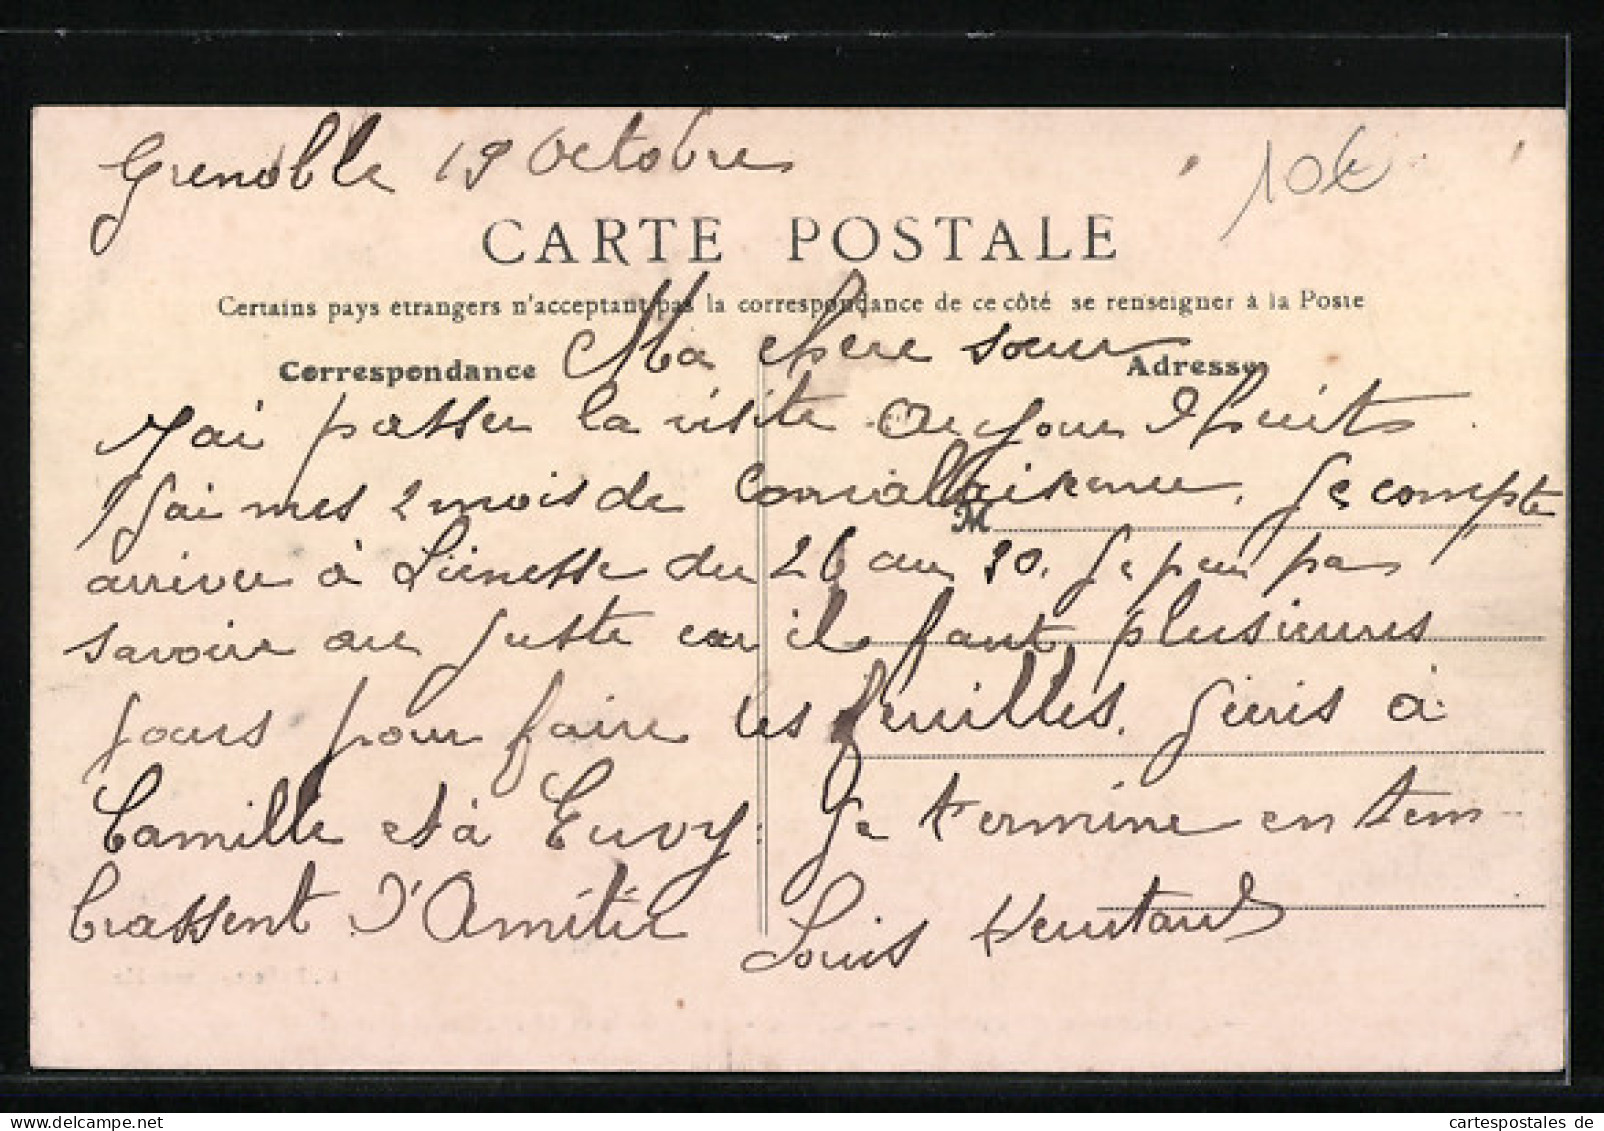 Grenoble 19 Octobre
10€
CARTE POSTALE
Certains pays étrangers n'acceptant pas la correspondance de ce côté se renseigner à la Poste
Correspondance
Ma chère soeur
Adresse
J'ai passer la visite Aujour d'huit
J'ai mes 2 mois de Convallaisence. Je compte
M
arriver à Lienesse du 26 au 30. Je peu pas
savoire au juste car il faut plusieures
jours pour faire les feuilles. J'eris à
Camille et à Euvoy. Je termine en tem-
brassent d'Amitié Louis
cartespostales.de